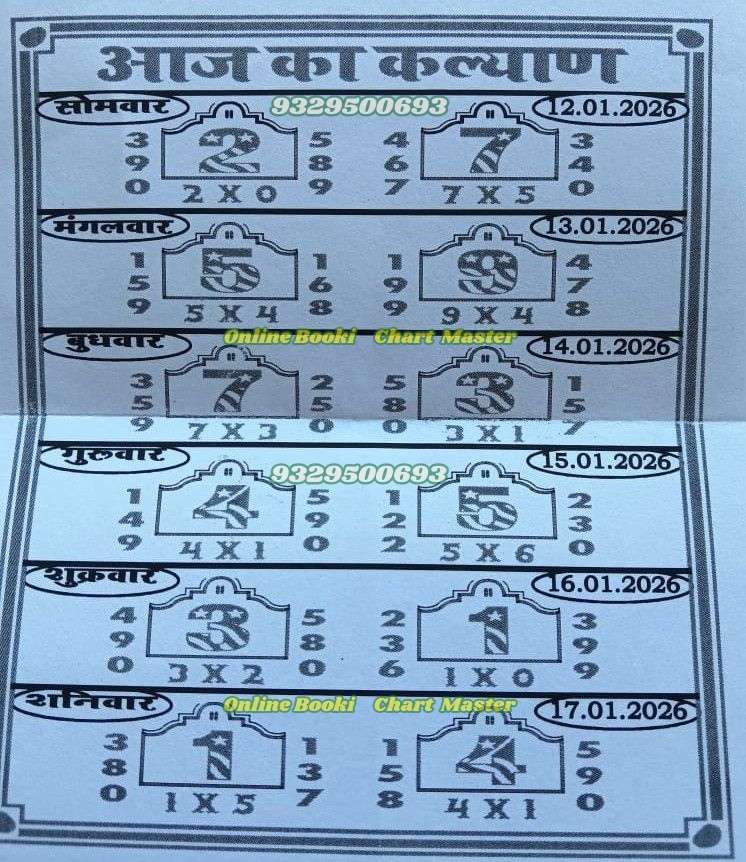 आज का कल्याण
सोमवार 9329500693 12.01.2026
3 5 4 3
9 2 8 6 7 4
0 2 X 0 9 7 7 X 5 0
मंगलवार 13.01.2026
1 1 1 4
5 5 6 9 9 7
9 5 X 4 8 9 9 X 4 8
Online Booki Chart Master
बुधवार 14.01.2026
3 2 5 1
5 7 5 8 3 5
9 7 X 3 0 0 3 X 1 7
गुरुवार 9329500693 15.01.2026
1 5 1 2
4 4 9 2 5 3
9 4 X 1 0 2 5 X 6 0
शुक्रवार 16.01.2026
4 5 2 3
9 3 8 3 1 9
0 3 X 2 0 6 1 X 0 9
शनिवार Online Booki Chart Master 17.01.2026
3 1 1 5
8 1 3 5 4 9
0 1 X 5 7 8 4 X 1 0